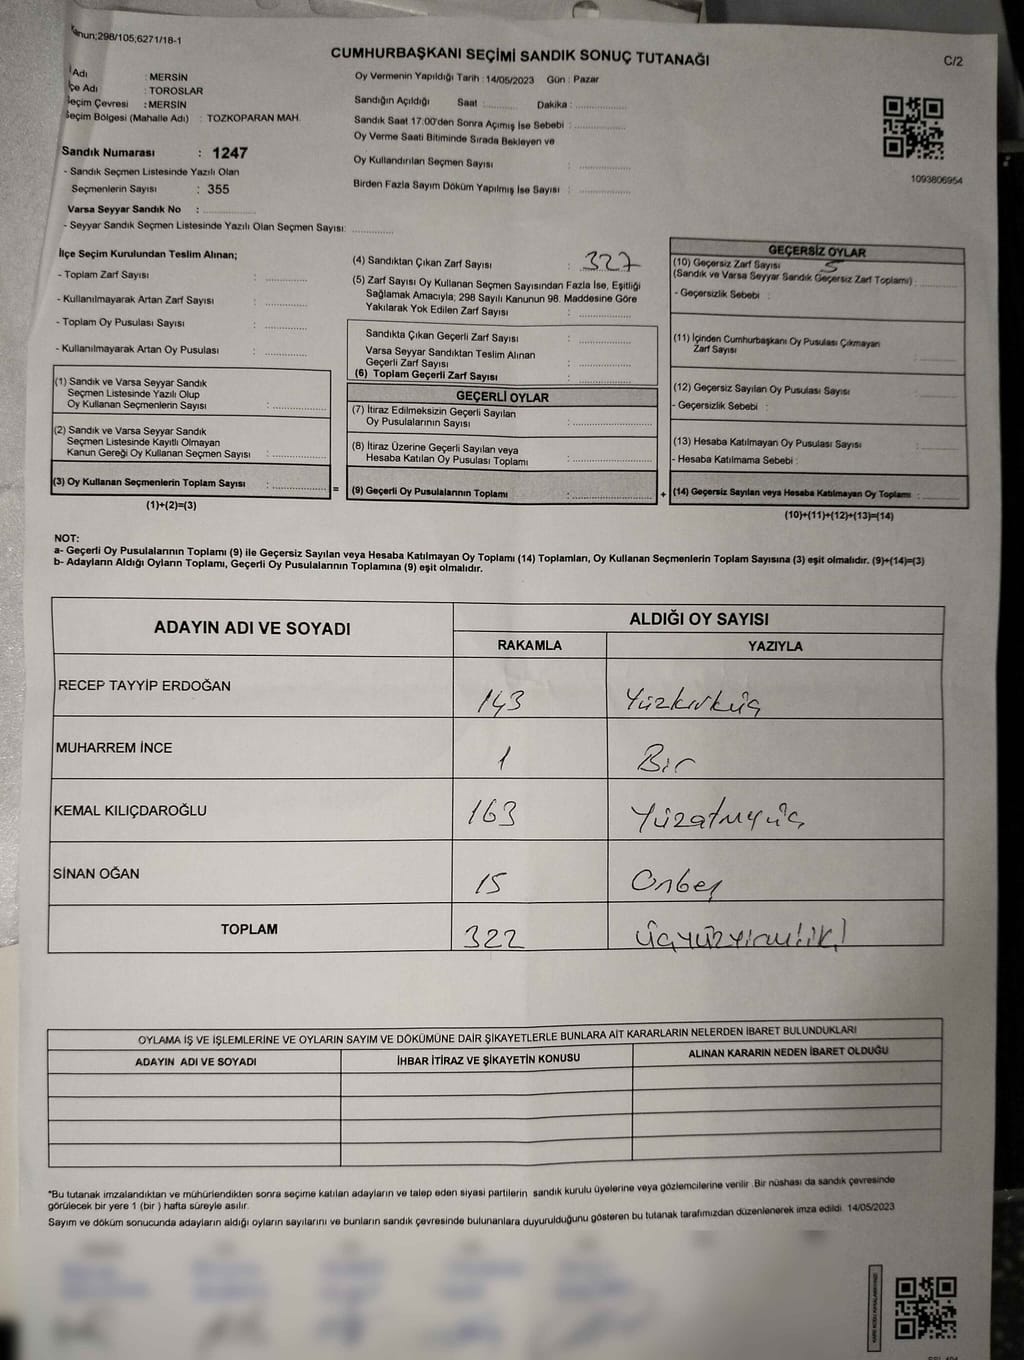 Kanun;298/105,6271/18-1
CUMHURBAŞKANI SEÇİMİ SANDIK SONUÇ TUTANAĞI
C/2
İl Adı : MERSİN
İlçe Adı : TOROSLAR
Seçim Çevresi : MERSİN
Seçim Bölgesi (Mahalle Adı) : TOZKOPARAN MAH.
Sandık Numarası : 1247
- Sandık Seçmen Listesinde Yazılı Olan
Seçmenlerin Sayısı : 355
Varsa Seyyar Sandık No :
- Seyyar Sandık Seçmen Listesinde Yazılı Olan Seçmen Sayısı:
Oy Vermenin Yapıldığı Tarih : 14/05/2023 Gün : Pazar
Sandığın Açıldığı Saat : Dakika :
Sandık Saat 17:00'den Sonra Açımış İse Sebebi :
Oy Verme Saati Bitiminde Sırada Bekleyen ve
Oy Kullandırılan Seçmen Sayısı :
Birden Fazla Sayım Döküm Yapılmış İse Sayısı :
1093806954
İlçe Seçim Kurulundan Teslim Alınan;
- Toplam Zarf Sayısı :
- Kullanılmayarak Artan Zarf Sayısı :
- Toplam Oy Pusulası Sayısı :
- Kullanılmayarak Artan Oy Pusulası :
(1) Sandık ve Varsa Seyyar Sandık
Seçmen Listesinde Yazılı Olup
Oy Kullanan Seçmenlerin Sayısı :
(2) Sandık ve Varsa Seyyar Sandık
Seçmen Listesinde Kayıtlı Olmayan
Kanun Gereği Oy Kullanan Seçmen Sayısı :
(3) Oy Kullanan Seçmenlerin Toplam Sayısı :
(1)+(2)=(3)
=
(4) Sandıktan Çıkan Zarf Sayısı : 327
(5) Zarf Sayısı Oy Kullanan Seçmen Sayısından Fazla İse, Eşitliği
Sağlamak Amacıyla; 298 Sayılı Kanunun 98. Maddesine Göre
Yakılarak Yok Edilen Zarf Sayısı :
Sandıkta Çıkan Geçerli Zarf Sayısı :
Varsa Seyyar Sandıktan Teslim Alınan
Geçerli Zarf Sayısı :
(6) Toplam Geçerli Zarf Sayısı :
GEÇERLİ OYLAR
(7) İtiraz Edilmeksizin Geçerli Sayılan
Oy Pusulalarının Sayısı :
(8) İtiraz Üzerine Geçerli Sayılan veya
Hesaba Katılan Oy Pusulası Toplamı :
(9) Geçerli Oy Pusulalarının Toplamı :
+
GEÇERSİZ OYLAR
(10) Geçersiz Zarf Sayısı 5
(Sandık ve Varsa Seyyar Sandık Geçersiz Zarf Toplamı) :
- Geçersizlik Sebebi :
(11) İçinden Cumhurbaşkanı Oy Pusulası Çıkmayan
Zarf Sayısı :
(12) Geçersiz Sayılan Oy Pusulası Sayısı :
- Geçersizlik Sebebi :
(13) Hesaba Katılmayan Oy Pusulası Sayısı :
- Hesaba Katılmama Sebebi :
(14) Geçersiz Sayılan veya Hesaba Katılmayan Oy Toplamı :
(10)+(11)+(12)+(13)=(14)
NOT:
a- Geçerli Oy Pusulalarının Toplamı (9) ile Geçersiz Sayılan veya Hesaba Katılmayan Oy Toplamı (14) Toplamları, Oy Kullanan Seçmenlerin Toplam Sayısına (3) eşit olmalıdır. (9)+(14)=(3)
b- Adayların Aldığı Oyların Toplamı, Geçerli Oy Pusulalarının Toplamına (9) eşit olmalıdır.
ADAYIN ADI VE SOYADI
ALDIĞI OY SAYISI
RAKAMLA YAZIYLA
RECEP TAYYİP ERDOĞAN 143 Yüzkırküç
MUHARREM İNCE 1 Bir
KEMAL KILIÇDAROĞLU 163 Yüzatmışüç
SİNAN OĞAN 15 Onbeş
TOPLAM 322 Üçyüzyirmiiki
OYLAMA İŞ VE İŞLEMLERİNE VE OYLARIN SAYIM VE DÖKÜMÜNE DAİR ŞİKAYETLERLE BUNLARA AİT KARARLARIN NELERDEN İBARET BULUNDUKLARI
ADAYIN ADI VE SOYADI İHBAR İTİRAZ VE ŞİKAYETİN KONUSU ALINAN KARARIN NEDEN İBARET OLDUĞU
*Bu tutanak imzalandıktan ve mühürlendikten sonra seçime katılan adayların ve talep eden siyasi partilerin sandık kurulu üyelerine veya gözlemcilerine verilir .Bir nüshası da sandık çevresinde
görülecek bir yere 1 (bir ) hafta süreyle asılır.
Sayım ve döküm sonucunda adayların aldığı oyların sayılarını ve bunların sandık çevresinde bulunanlara duyurulduğunu gösteren bu tutanak tarafımızdan düzenlenerek imza edildi. 14/05/2023